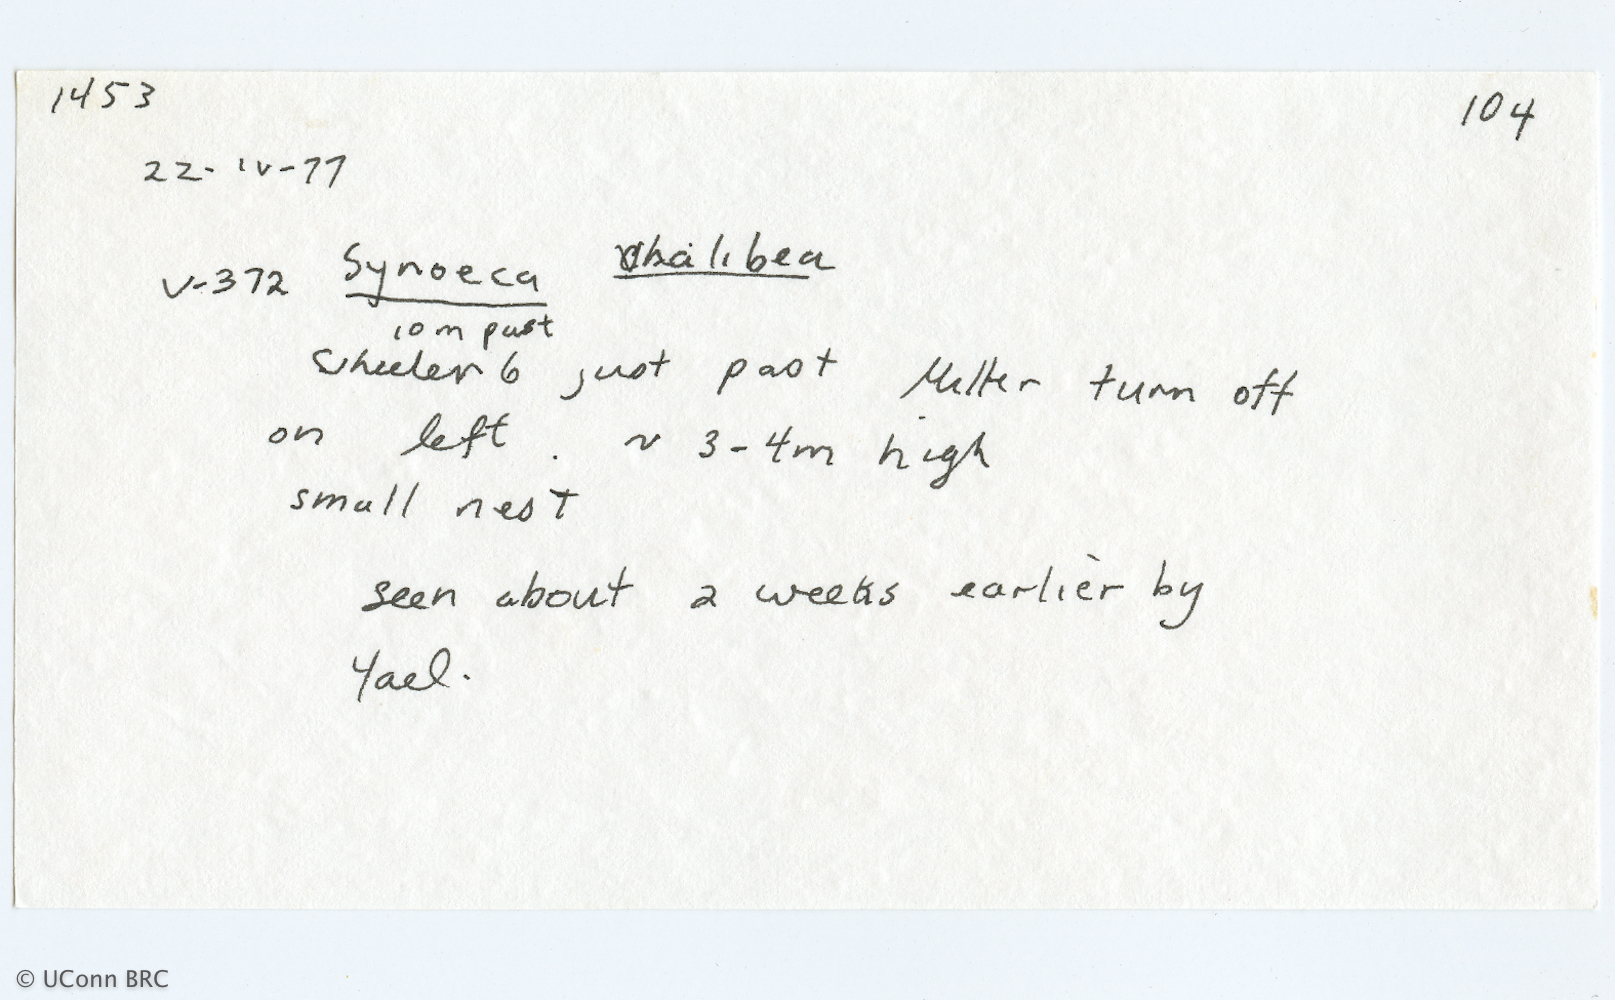 1453 104
22-IV-77
V-372 Synoeca chalibea
10m past
Wheeler 6 just past Miller turn off
on left. ~ 3-4m high
small nest
seen about 2 weeks earlier by
Yael.
© UConn BRC